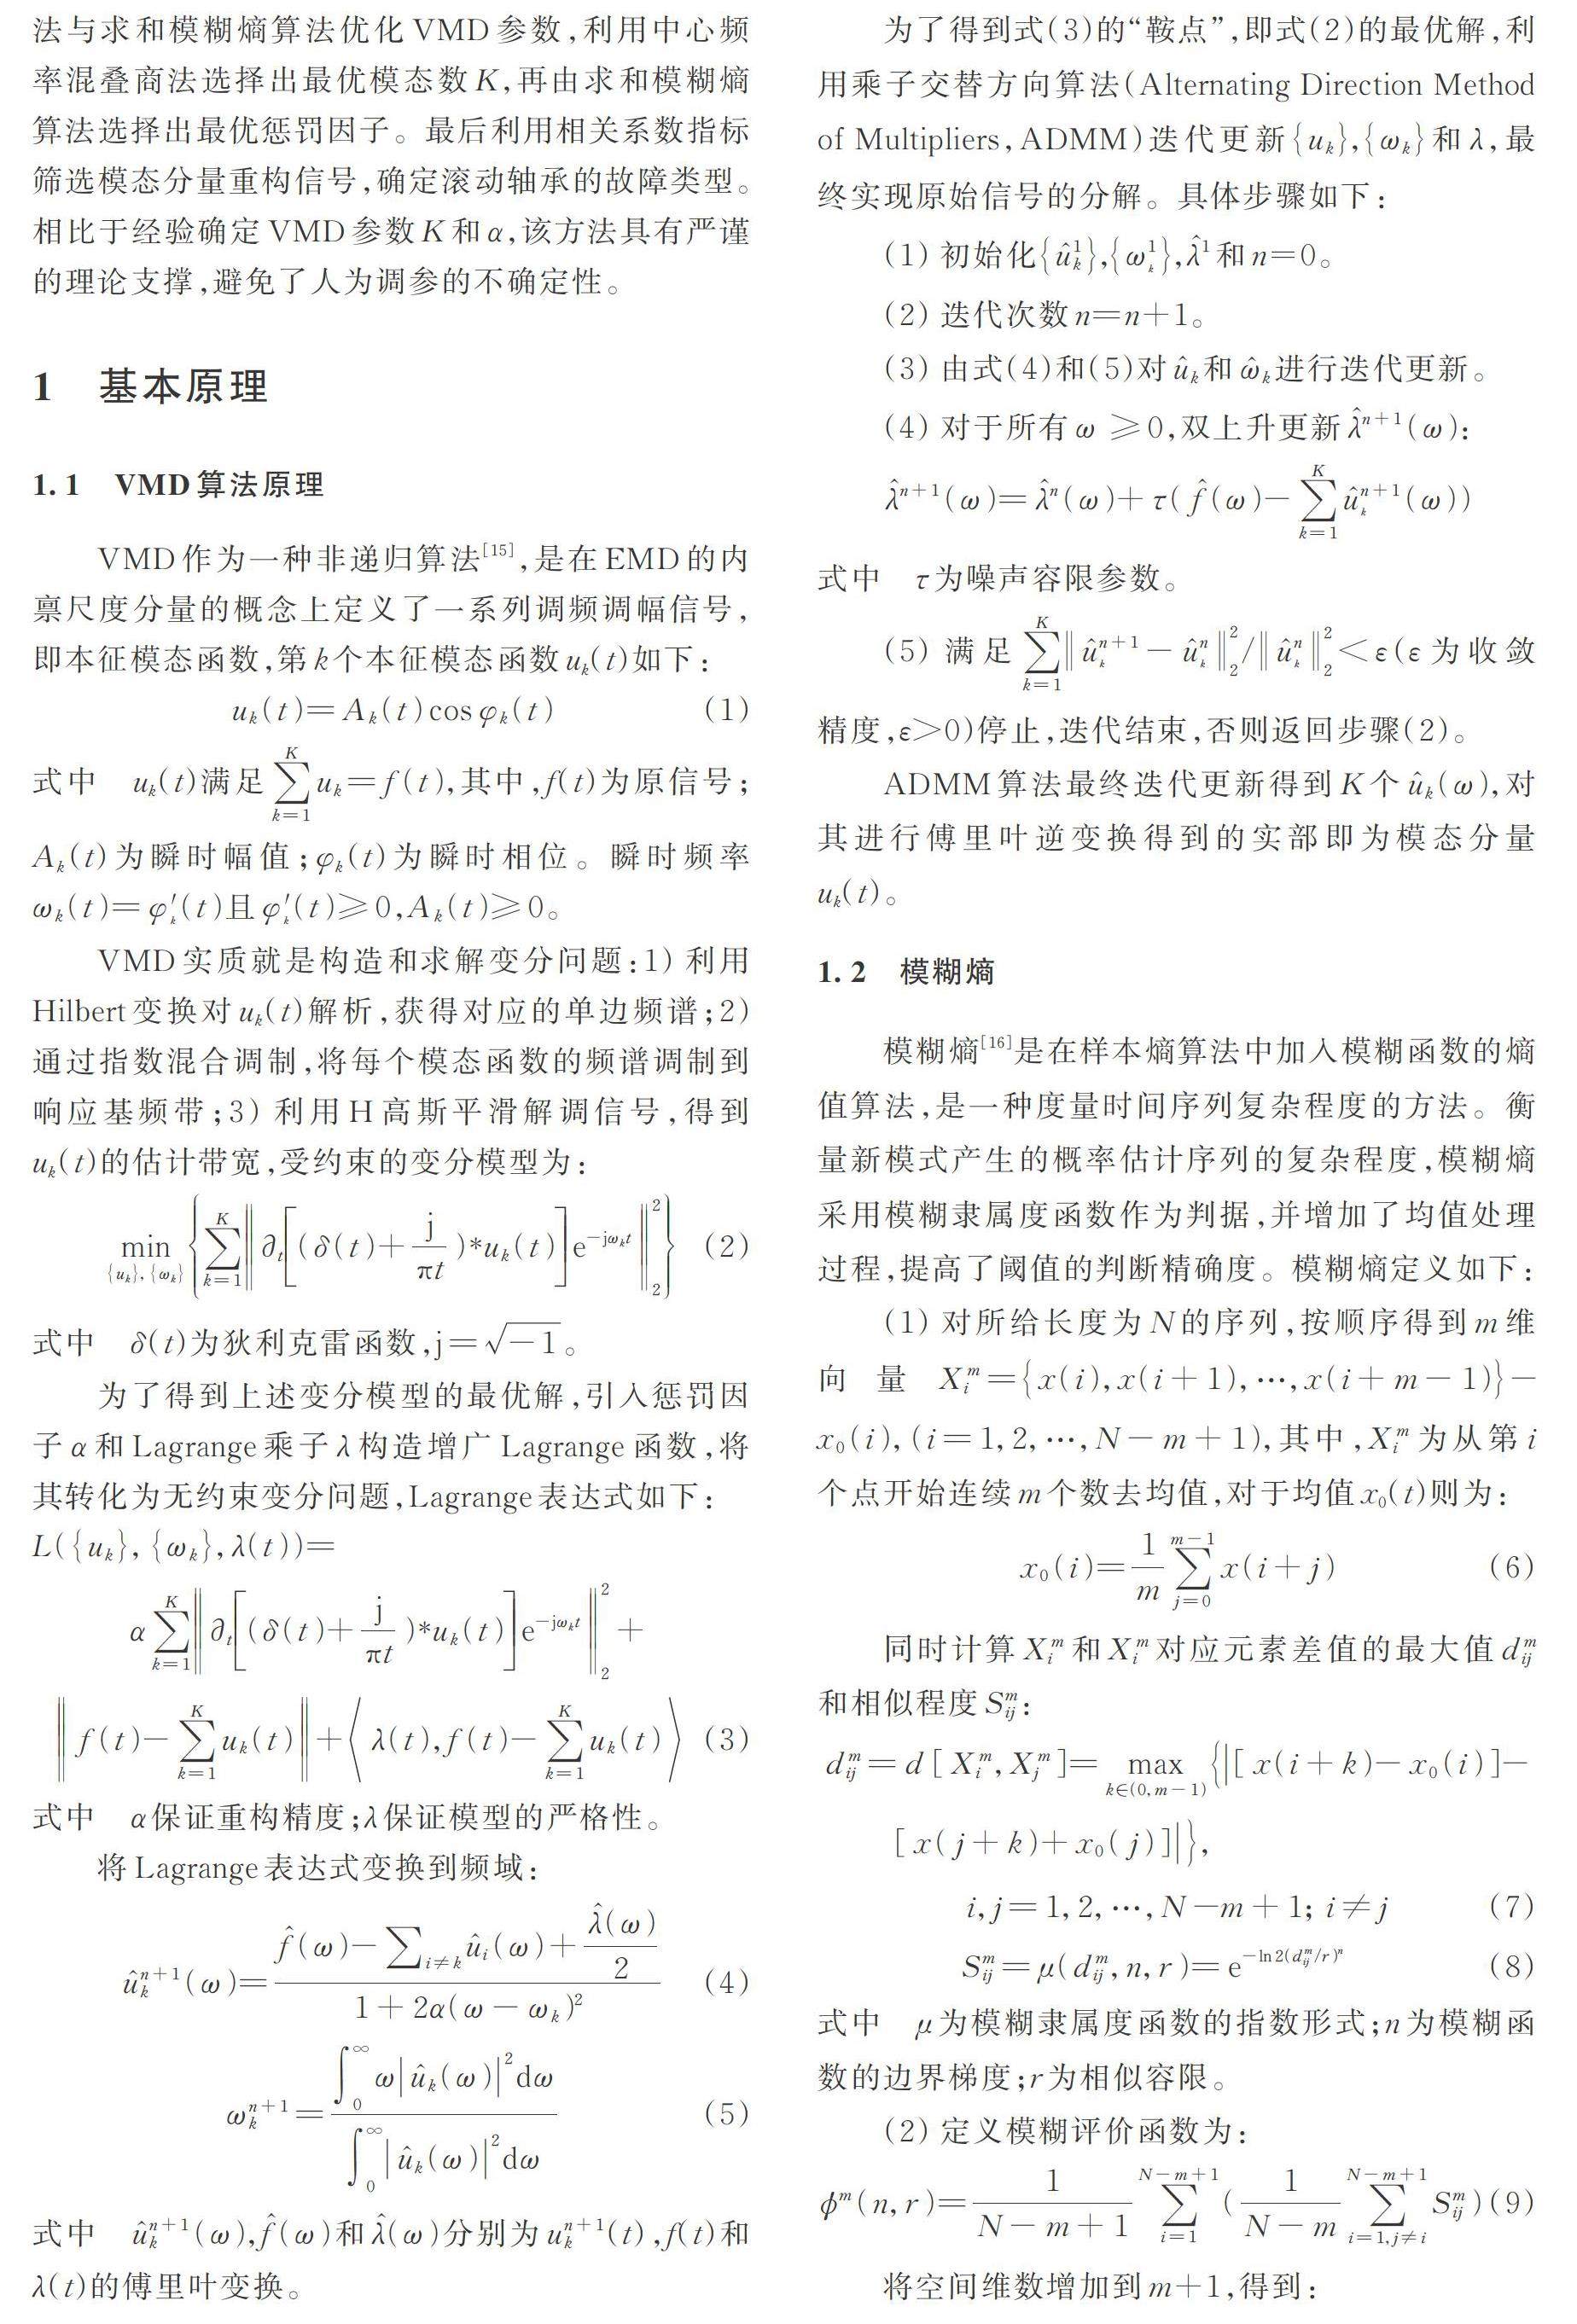 法与求和模糊熵算法优化 VMD 参数,利用中心频
率混叠商法选择出最优模态数 K,再由求和模糊熵
算法选择出最优惩罚因子。最后利用相关系数指标
筛选模态分量重构信号,确定滚动轴承的故障类型。
相比于经验确定 VMD 参数 K 和 α,该方法具有严谨
的理论支撑,避免了人为调参的不确定性。
1 基本原理
1.1 VMD 算法原理
VMD 作为一种非递归算法[15],是在 EMD 的内
禀尺度分量的概念上定义了一系列调频调幅信号,
即本征模态函数,第 k 个本征模态函数 u_k(t)如下:
u_k(t)=A_k(t)cos φ_k(t) (1)
式中 u_k(t)满足 ∑_{k=1}^{K} u_k=f(t),其中,f(t)为原信号;
A_k(t)为瞬时幅值;φ_k(t)为瞬时相位。瞬时频率
ω_k(t)=φ′_k(t)且 φ′_k(t)≥0,A_k(t)≥0。
VMD 实质就是构造和求解变分问题:1) 利用
Hilbert 变换对 u_k(t)解析,获得对应的单边频谱;2)
通过指数混合调制,将每个模态函数的频谱调制到
响应基频带;3) 利用 H 高斯平滑解调信号,得到
u_k(t)的估计带宽,受约束的变分模型为:
min_{{u_k},{ω_k}} {∑_{k=1}^{K} ‖∂_t[(δ(t)+j/πt)*u_k(t)]e^{-jω_k t}‖_2^2} (2)
式中 δ(t)为狄利克雷函数,j=√-1。
为了得到上述变分模型的最优解,引入惩罚因
子 α 和 Lagrange 乘子 λ 构造增广 Lagrange 函数,将
其转化为无约束变分问题,Lagrange 表达式如下:
L({u_k}, {ω_k}, λ(t))=
α∑_{k=1}^{K} ‖∂_t[(δ(t)+j/πt)*u_k(t)]e^{-jω_k t}‖_2^2+
‖f(t)-∑_{k=1}^{K} u_k(t)‖+⟨λ(t),f(t)-∑_{k=1}^{K} u_k(t)⟩ (3)
式中 α保证重构精度;λ保证模型的严格性。
将 Lagrange 表达式变换到频域:
û_k^{n+1}(ω)=(f̂(ω)-∑_{i≠k} û_i(ω)+λ̂(ω)/2)/(1+2α(ω-ω_k)^2) (4)
ω_k^{n+1}=∫_0^∞ ω|û_k(ω)|^2dω/∫_0^∞ |û_k(ω)|^2dω (5)
式中 û_k^{n+1}(ω),f̂(ω)和 λ̂(ω)分别为 u_k^{n+1}(t),f(t)和
λ(t)的傅里叶变换。
为了得到式(3)的“鞍点”,即式(2)的最优解,利
用乘子交替方向算法(Alternating Direction Method
of Multipliers,ADMM)迭代更新{u_k},{ω_k}和 λ,最
终实现原始信号的分解。具体步骤如下:
(1) 初始化{û_k^1},{ω_k^1},λ̂^1 和 n=0。
(2) 迭代次数 n=n+1。
(3) 由式(4)和(5)对 û_k 和 ω̂_k 进行迭代更新。
(4) 对于所有 ω ≥0,双上升更新 λ̂^{n+1}(ω):
λ̂^{n+1}(ω)=λ̂^n(ω)+τ(f̂(ω)-∑_{k=1}^{K} û_k^{n+1}(ω))
式中 τ为噪声容限参数。
(5) 满足 ∑_{k=1}^{K} ‖û_k^{n+1}-û_k^n‖_2^2/‖û_k^n‖_2^2<ε(ε 为收敛
精度,ε>0)停止,迭代结束,否则返回步骤(2)。
ADMM 算法最终迭代更新得到 K 个 û_k(ω),对
其进行傅里叶逆变换得到的实部即为模态分量
u_k(t)。
1.2 模糊熵
模糊熵[16]是在样本熵算法中加入模糊函数的熵
值算法,是一种度量时间序列复杂程度的方法。衡
量新模式产生的概率估计序列的复杂程度,模糊熵
采用模糊隶属度函数作为判据,并增加了均值处理
过程,提高了阈值的判断精确度。模糊熵定义如下:
(1) 对所给长度为 N 的序列,按顺序得到 m 维
向量 X_i^m={x(i),x(i+1),…,x(i+m-1)}-
x_0(i),(i=1,2,…,N-m+1),其中,X_i^m 为从第 i
个点开始连续 m 个数去均值,对于均值 x_0(t)则为:
x_0(i)=1/m ∑_{j=0}^{m-1} x(i+j) (6)
同时计算 X_i^m 和 X_i^m 对应元素差值的最大值 d_{ij}^m
和相似程度 S_{ij}^m:
d_{ij}^m=d[X_i^m,X_j^m]=max_{k∈(0,m-1)}{|[x(i+k)-x_0(i)]-
[x(j+k)+x_0(j)]|},
i,j=1,2,…,N-m+1; i≠j (7)
S_{ij}^m=μ(d_{ij}^m,n,r)=e^{-ln2(d_{ij}^m/r)^n} (8)
式中 μ为模糊隶属度函数的指数形式;n为模糊函
数的边界梯度;r为相似容限。
(2) 定义模糊评价函数为:
ϕ^m(n,r)=1/(N-m+1) ∑_{i=1}^{N-m+1} (1/(N-m) ∑_{i=1,j≠i}^{N-m+1} S_{ij}^m) (9)
将空间维数增加到 m+1,得到: